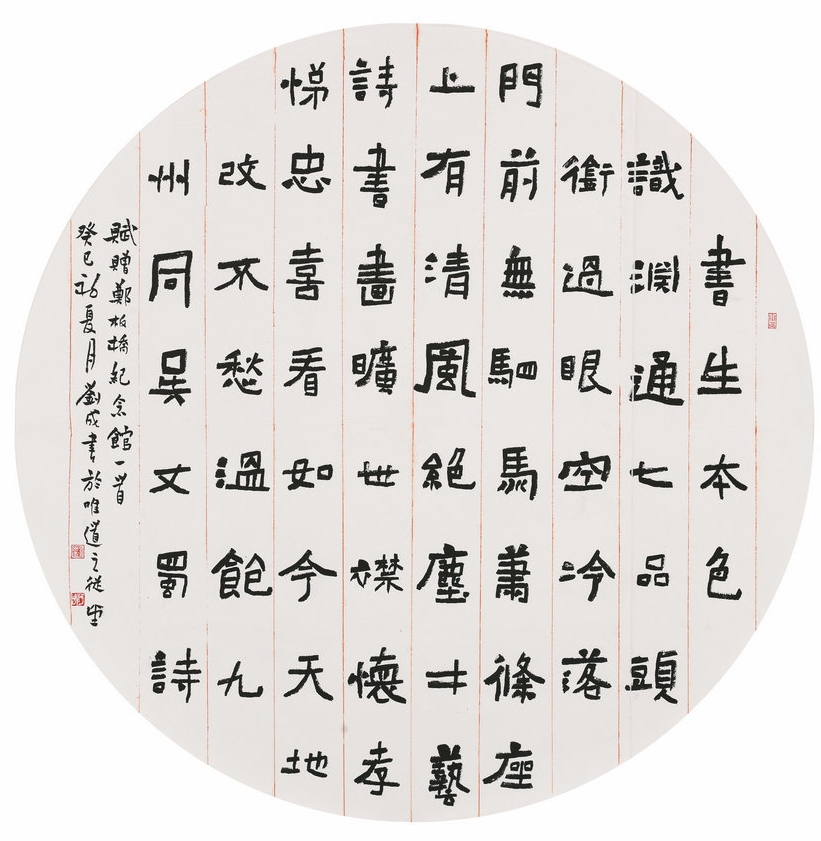 書生本色
識淵通七品頭
銜過眼空冷落
門前無駟馬蕭條座
上有清風絕塵才藝
詩書畫曠世襟懷孝
悌忠喜看如今天地
改不愁溫飽九
州同吳丈蜀詩
賦贈鄭板橋紀念館一首
癸巳初夏月劉成書於唯道之從堂